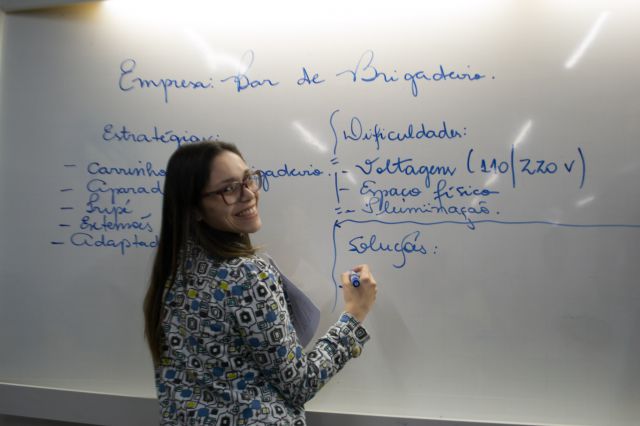 Empresa: Bar de Brigadeiro.
Estratégias:
- Carrinho
- Aparad
- Tripé
- Extensões
- Adaptad
Dificuldades:
- Voltagem (110|220 V)
- Espaço físico
- Iluminação.
Soluções:
-